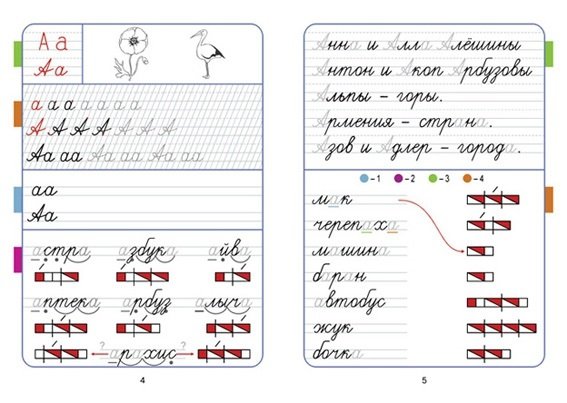 Аа
Аа
а а а а а а а
А А А А А А А
Аа аа Аа аа Аа аа
аа
Аа
астра азбука айва
аптека арбуз алыча
? арахис ?
4
Анна и Алла Алёшины
Антон и Акоп Арбузовы
Альпы – горы.
Армения – страна.
Азов и Адлер – города.
– 1 – 2 – 3 – 4
мак
черепаха
машина
баран
автобус
жук
бочка
5